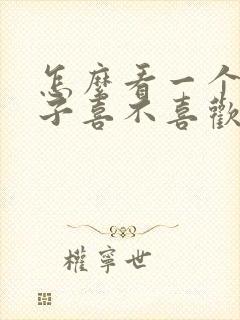 怎麼看一个
子喜不喜歡
權寧世